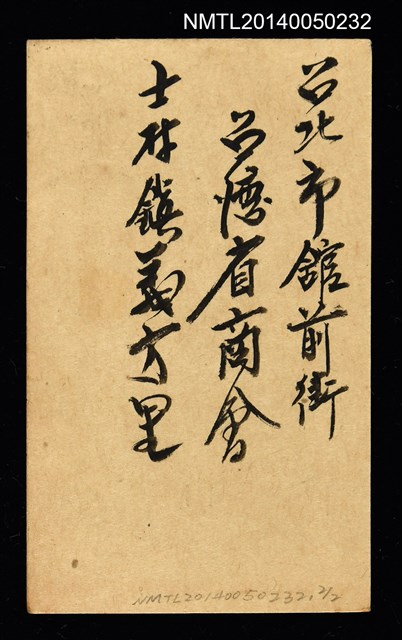 NMTL20140050232
台北市館前街
台灣省商會
士林鎮義方里
NMTL20140050232, 2/2